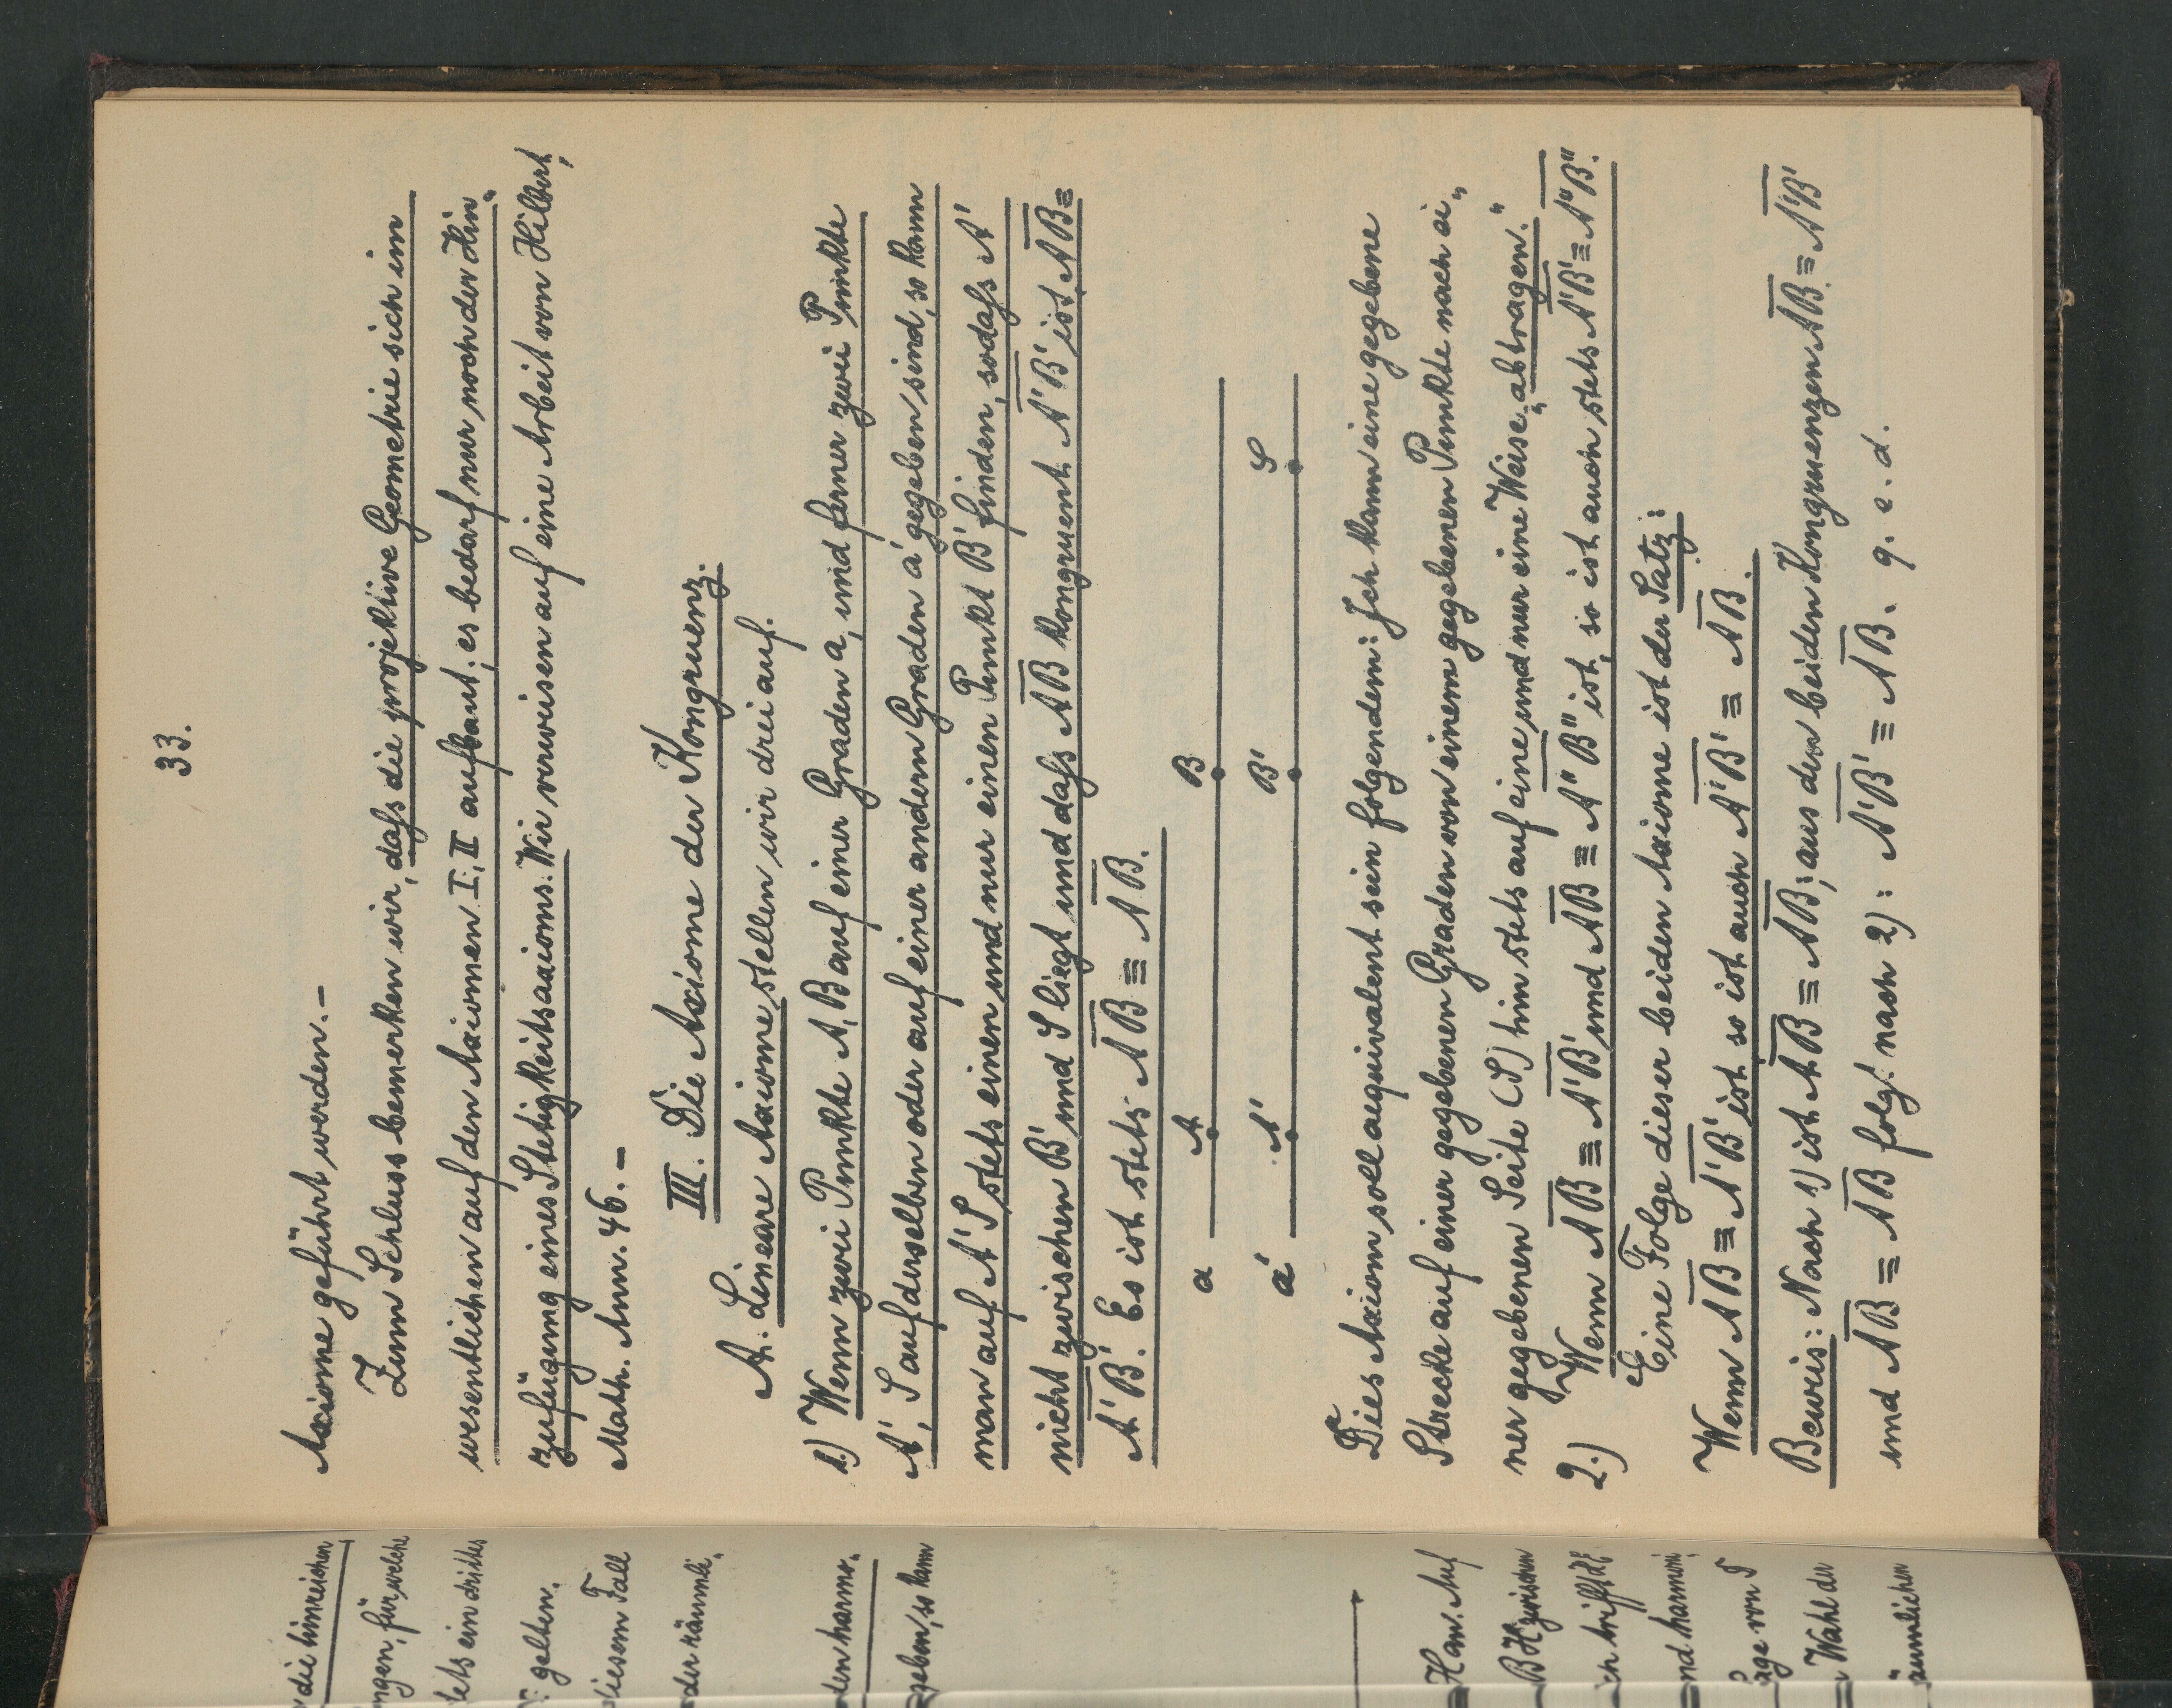 33.
Axiome geführt werden. –
Zum Schluss bemerken wir, dafs die projektive Geometrie sich im
wesentlichen auf den Axiomen I, II aufbaut; es bedarf nur noch der Hin„
zufügung eines Stetigkeitsaxioms. Wir verweisen auf eine Arbeit von Hilbert,
Math. Ann. 46. –
III. Die Axiome der Kongruenz.
A. Lineare Axiome stellen wir drei auf.
1.) Wenn zwei Punkte A, B auf einer Graden a, und ferner zwei Punkte
A', S auf derselben oder auf einer andern Graden a' gegeben sind, so kann
man auf A' S stets einen und nur einen Punkt B' finden, sodafs A'
nicht zwischen B' und S liegt und dafs A̅B̅ kongruent A̅'B̅' ist, A̅B̅ ≡
A̅'B̅'. Es ist stets A̅B̅ ≡ A̅B̅.
a A B
a' A' B' S
Dies Axiom soll aequivalent sein folgendem: Ich kann eine gegebene
Strecke auf einer gegebenen Graden von einem gegebenen Punkte nach ei„
ner gegebenen Seite (S) hin stets auf eine und nur eine Weise „abtragen."
2.) Wenn A̅B̅ ≡ A̅'B̅' und A̅B̅ ≡ A̅"B̅" ist, so ist auch stets A̅'B̅' ≡ A̅"B̅".
Eine Folge dieser beiden Axiome ist der Satz:
Wenn A̅B̅ ≡ A̅'B̅' ist, so ist auch A̅'B̅' ≡ A̅B̅.
Beweis: Nach 1) ist A̅B̅ ≡ A̅B̅; aus den beiden Kongruenzen A̅B̅ ≡ A̅'B̅'
und A̅B̅ ≡ A̅B̅ folgt nach 2): A̅'B̅' ≡ A̅B̅. q. e. d.
die hinreichen
ngen, für welche
tets ein drittes
gelten.
diesem Fall
der räumli„
den harmo„
geben, so kann
Ham. Auf
B H zwischen
ch trifft dE
nd harmoni
age von S
Wahl der
äumlichen